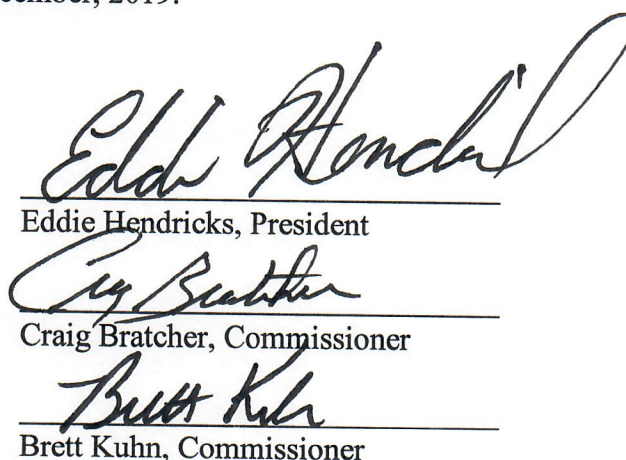 cember, 2019.
Eddie Hendricks
Eddie Hendricks, President
Craig Bratcher
Craig Bratcher, Commissioner
Brett Kuhn
Brett Kuhn, Commissioner